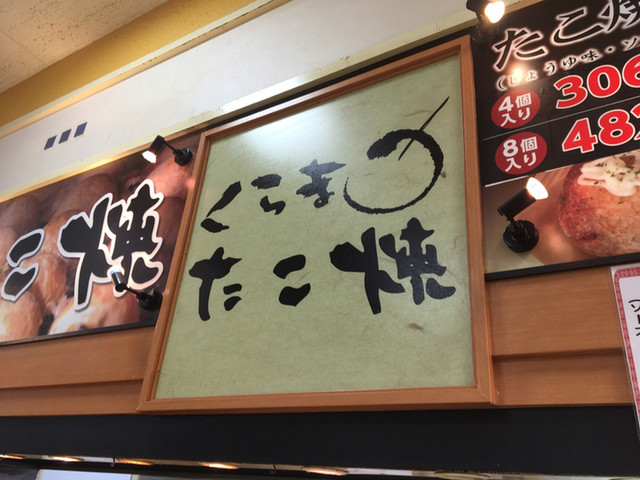 くらまの
たこ焼
こ焼
たこ焼
(しょうゆ味・ソ
4個入り 306
8個入り 482